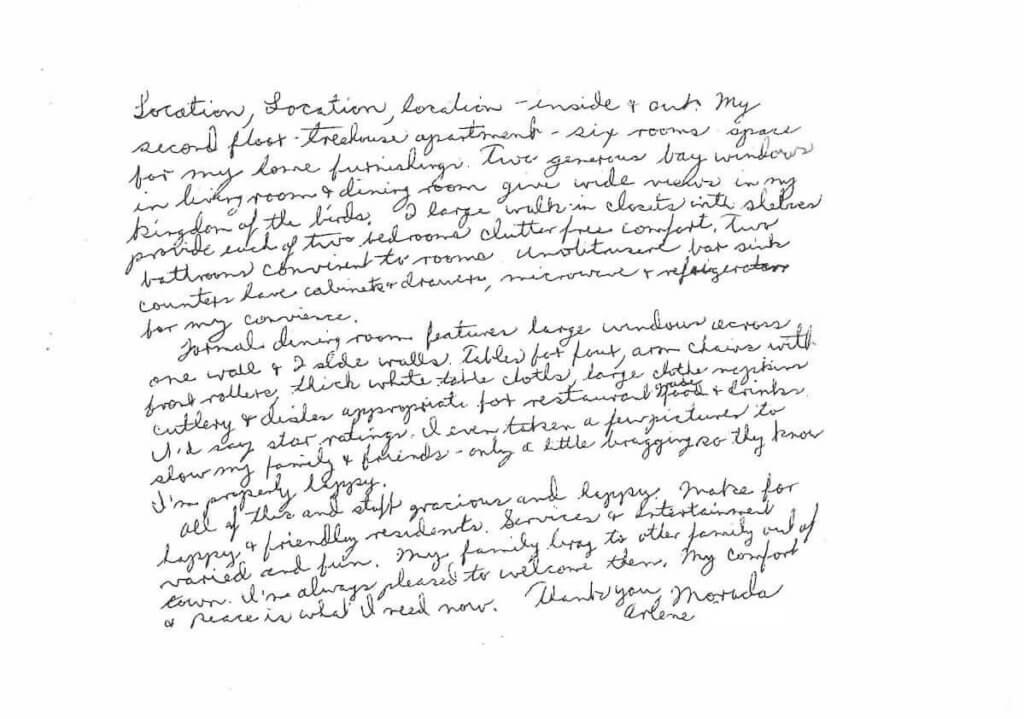 Location, Location, location - inside & out. My
second floor - treehouse apartment - six rooms space
for my home furnishings. Two generous bay windows
in living room & dining room give wide views in my
kingdom of the birds. 2 large walk-in closets with shelves
provide each of two bedrooms clutter free comfort. Two
bathrooms convinent to rooms. Unobtrusive bar sink
counters have cabinets & drawers, microwave & refrigerators
for my convience.
Formal dining room features large windows across
one wall & 2 side walls. Tables for four, arm chairs with
front rollers, thick white table cloths, large clothe napkins
cutlery & dishes appropriate for restaurant food & drinks.
I'd say star ratings. I even taken a few pictures to
show my family & friends - only a little bragging so they know
I'm properly happy.
All of this and staff gracious and happy. Make for
happy & friendly residents. Services & entertainment
varied and fun. My family brag to other family out of
town. I'm always pleased to welcome them. My comfort
& peace is what I need now. Thank you, Morada
Arlene